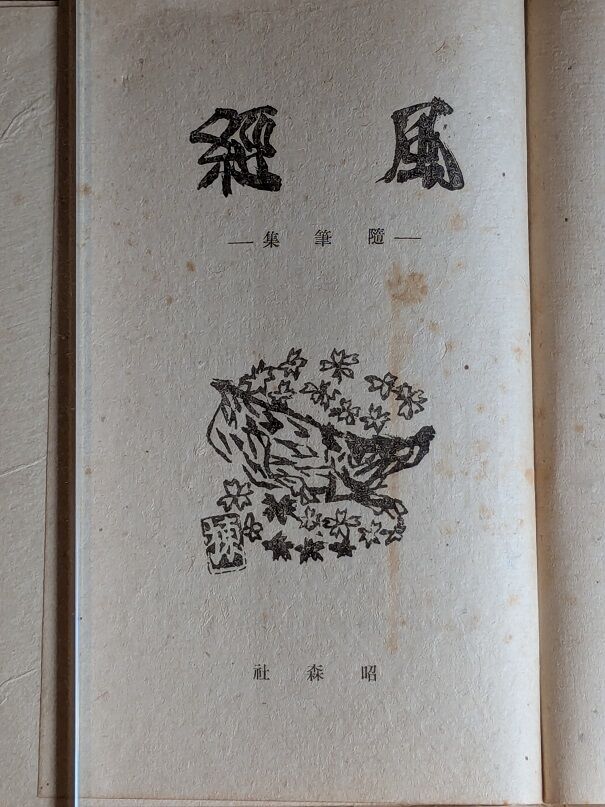 風經
―隨筆集―
昭森社